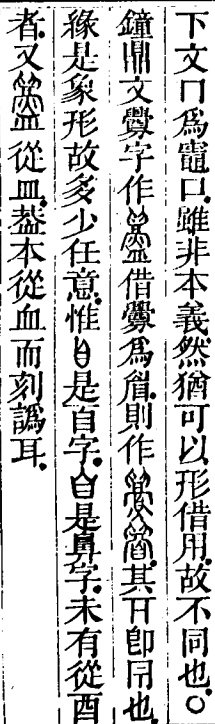 下文冂爲竈口雖非本義然猶可以形借用故不同也○
鐘鼎文釁字作借釁爲眉則作其即也
緣是象形故多少任意惟是自字是鼻字未有從酉
者又從皿葢本從血而刻譌耳